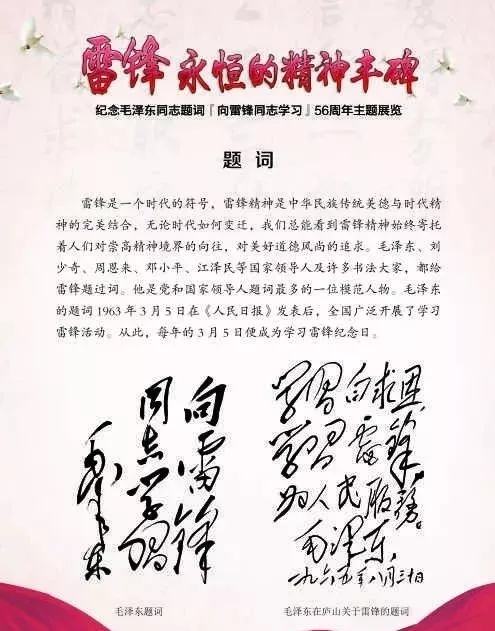 雷锋 永恒的精神丰碑
纪念毛泽东同志题词『向雷锋同志学习』56周年主题展览
题 词
雷锋是一个时代的符号，雷锋精神是中华民族传统美德与时代精
神的完美结合，无论时代如何变迁，我们总能看到雷锋精神始终寄托
着人们对崇高精神境界的向往，对美好道德风尚的追求。毛泽东、刘
少奇、周恩来、邓小平、江泽民等国家领导人及许多书法大家，都给
雷锋题过词。他是党和国家领导人题词最多的一位模范人物。毛泽东
的题词 1963 年 3 月 5 日在《人民日报》发表后，全国广泛开展了学习
雷锋活动。从此，每年的 3 月 5 日便成为学习雷锋纪念日。
向雷锋
同志学习
毛泽东
学习白求恩，
学习雷锋，
为人民服务。
毛泽东
一九六五年八月三十日
毛泽东题词
毛泽东在庐山关于雷锋的题词